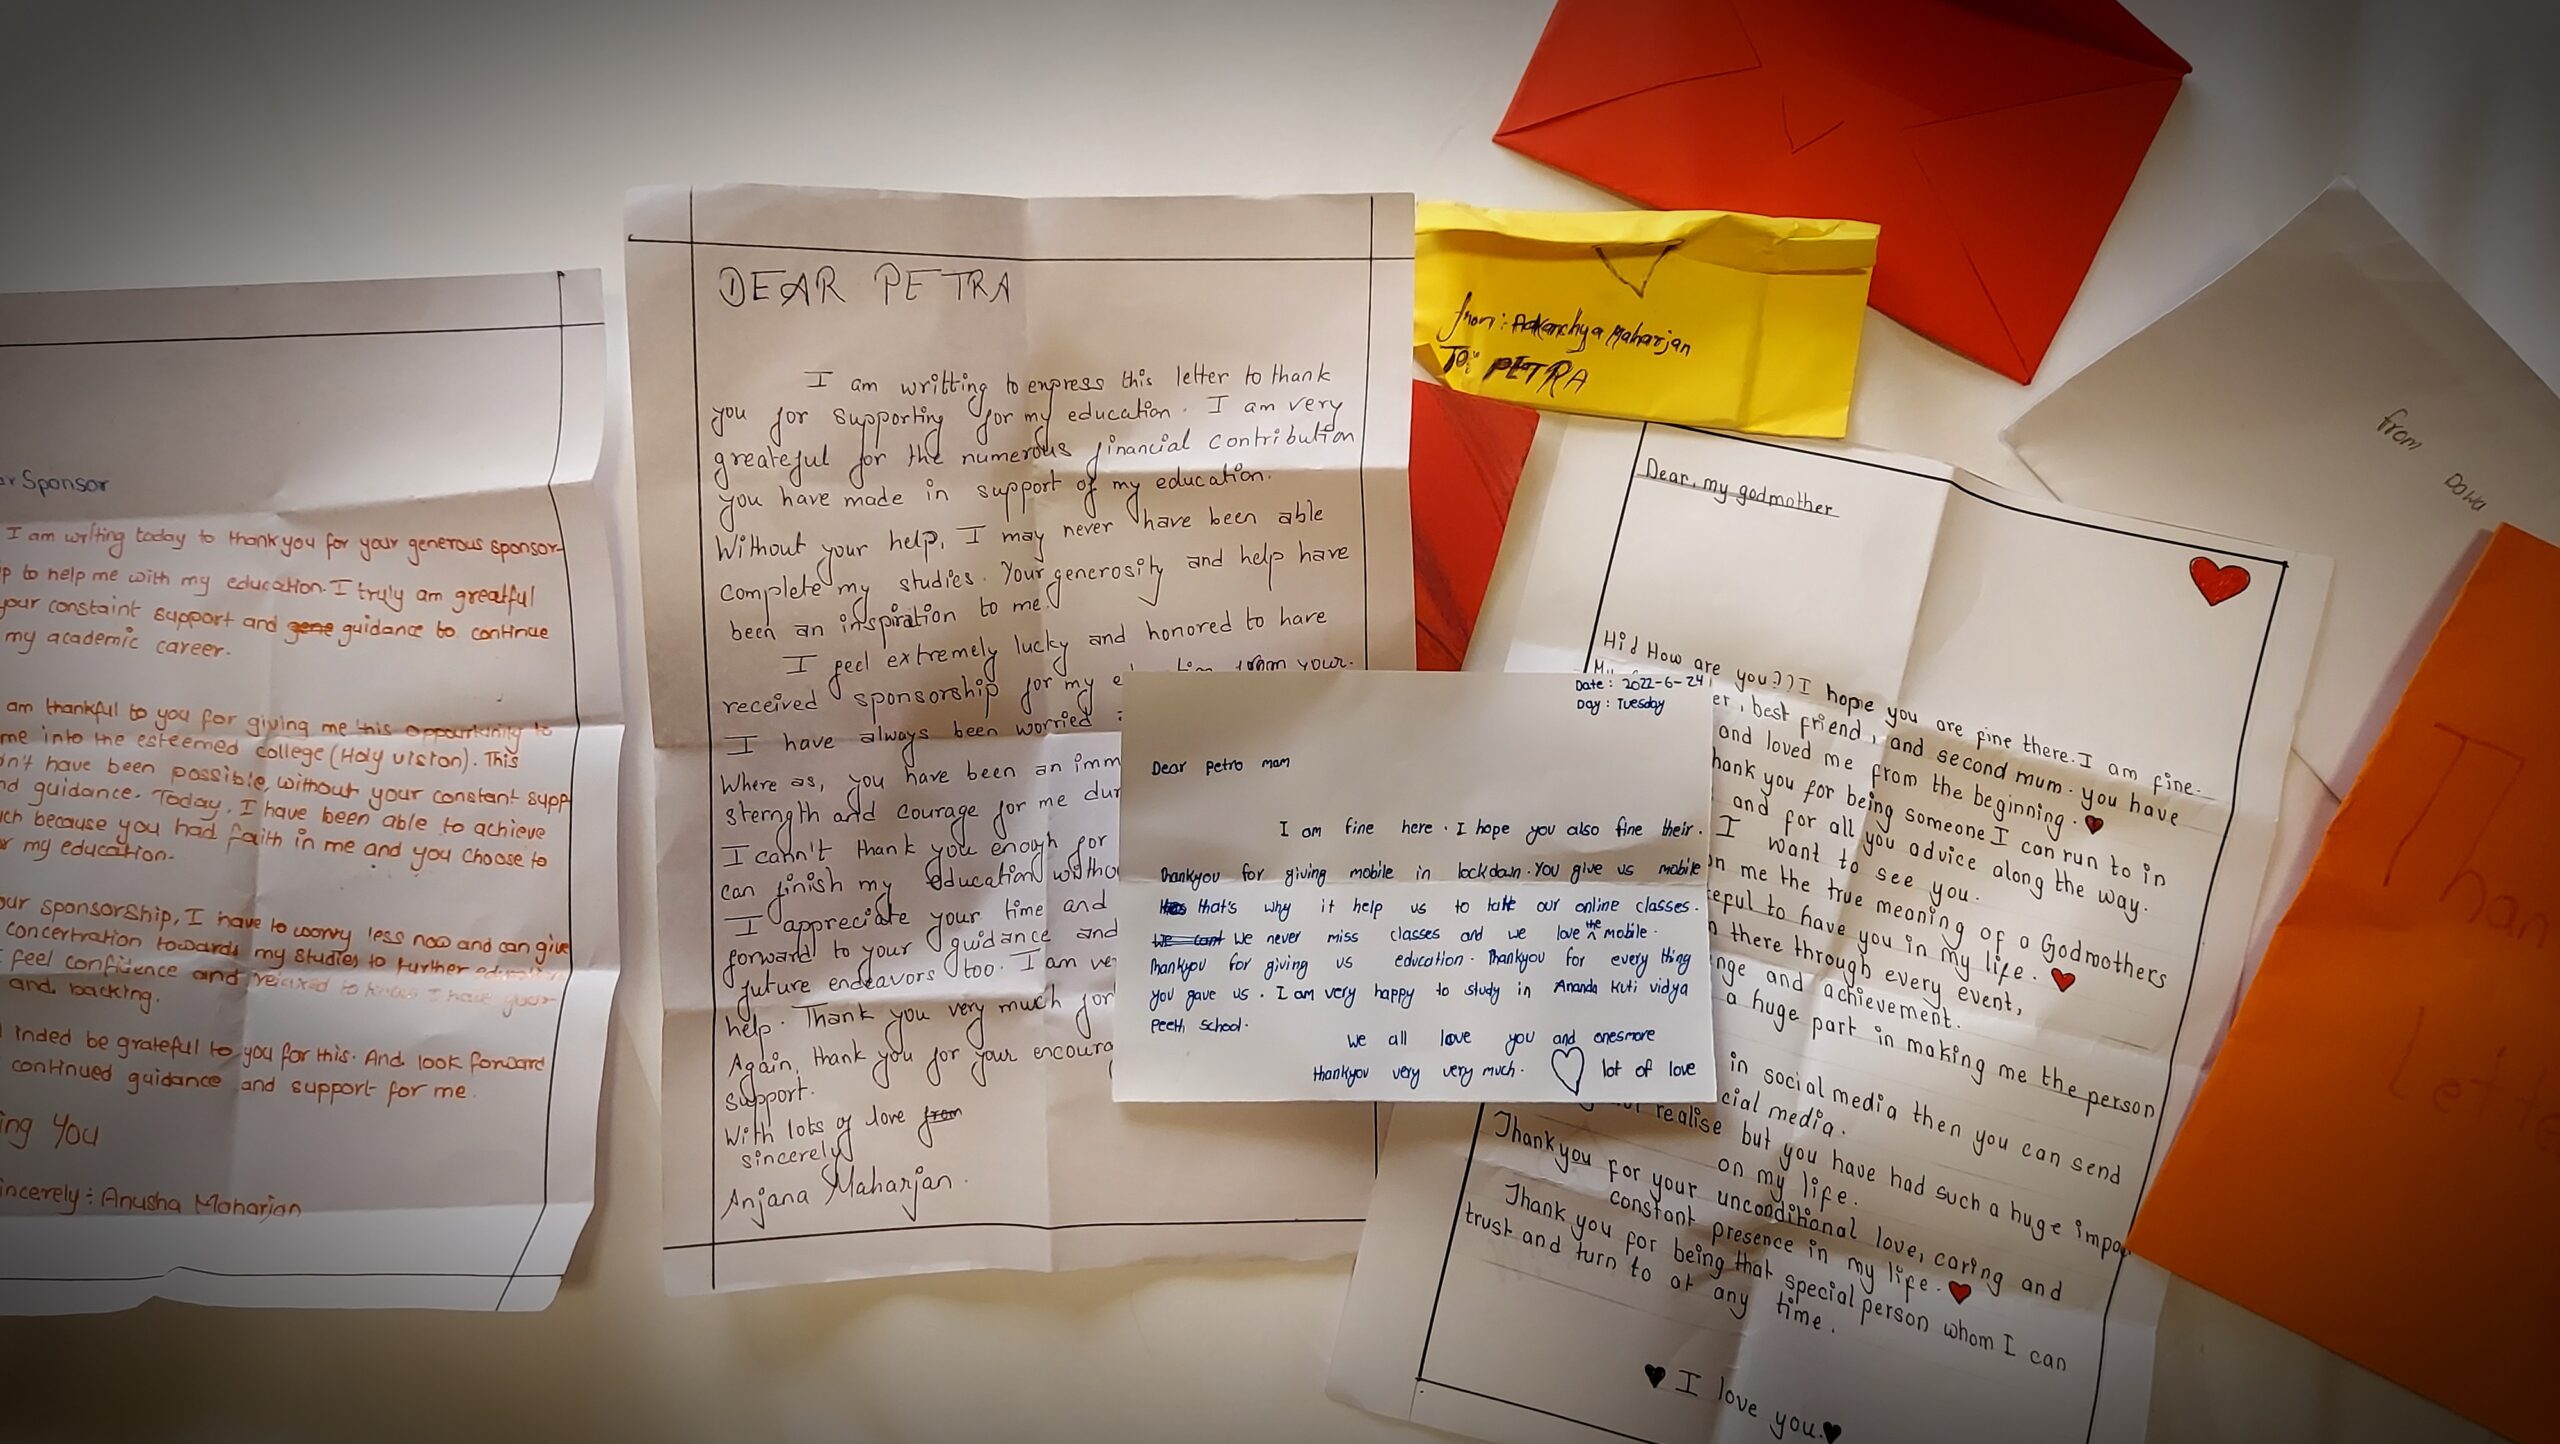 ar Sponsor
I am writing today to thank you for your generous sponsor-
p to help me with my education. I truly am greatful
your constaint support and gene guidance to continue
my academic career.
am thankful to you for giving me this oppourtunity to
me into the esteemed college (Holy vision). This
dn't have been possible, without your constant supp
nd guidance. Today, I have been able to achieve
uch because you had faith in me and you choose to
r my education.
our sponsorship, I have to worry less now and can give
concertration towards my studies to further education
feel confidence and relaxed to know I have your
and, backing.
inded be grateful to you for this. And look forward
continued guidance and support for me.
ing You
incerely : Anusha Maharjan
DEAR PETRA
I am writting to express this letter to thank
you for supporting for my education. I am very
greateful for the numerous financial contribution
you have made in support of my education.
Without your help, I may never have been able
complete my studies. Your generosity and help have
been an inspiration to me.
I feel extremely lucky and honored to have
received sponsorship for my e from your.
I have always been worried
Where as, you have been an imm
sterngth and courage for me dur
I cann't thank you enough for
can finish my education witho
I appreciate your time and
forward to your guidance and
future endeavors too. I am ve
help. Thank you very much for
Again, thank you for your encoura
support.
With lots of love from
sincerely
Anjana Maharjan.
from: Adkanchya Maharjan
To: PETRA
Date: 2022-6-24
Day: Tuesday
Dear petro mam
I am fine here. I hope you also fine their.
Thankyou for giving mobile in lockdown. You give us mobile
that's why it help us to take our online classes.
We cant We never miss classes and we love the mobile.
Thankyou for giving us education. Thankyou for every thing
you gave us. I am very happy to study in Ananda Kuti vidya
peeth school.
We all love you and onesmore
thankyou very very much. lot of love
Dear, my godmother
Hi! How are you?? I hope you are fine there. I am fine.
er, best friend, and second mum. you have
and loved me from the beginning.
hank you for being someone I can run to in
and for all you advice along the way.
I want to see you.
on me the true meaning of a Godmothers
eful to have you in my life.
n there through every event,
nge and achievement.
a huge part in making me the person
in social media then you can send
cial media.
realise but you have had such a huge impa
on my life.
Thankyou for your unconditional love, caring and
constant presence in my life.
Thank you for being that special person whom I can
trust and turn to at any time.
I love you.
from Dawa
Than
Lette